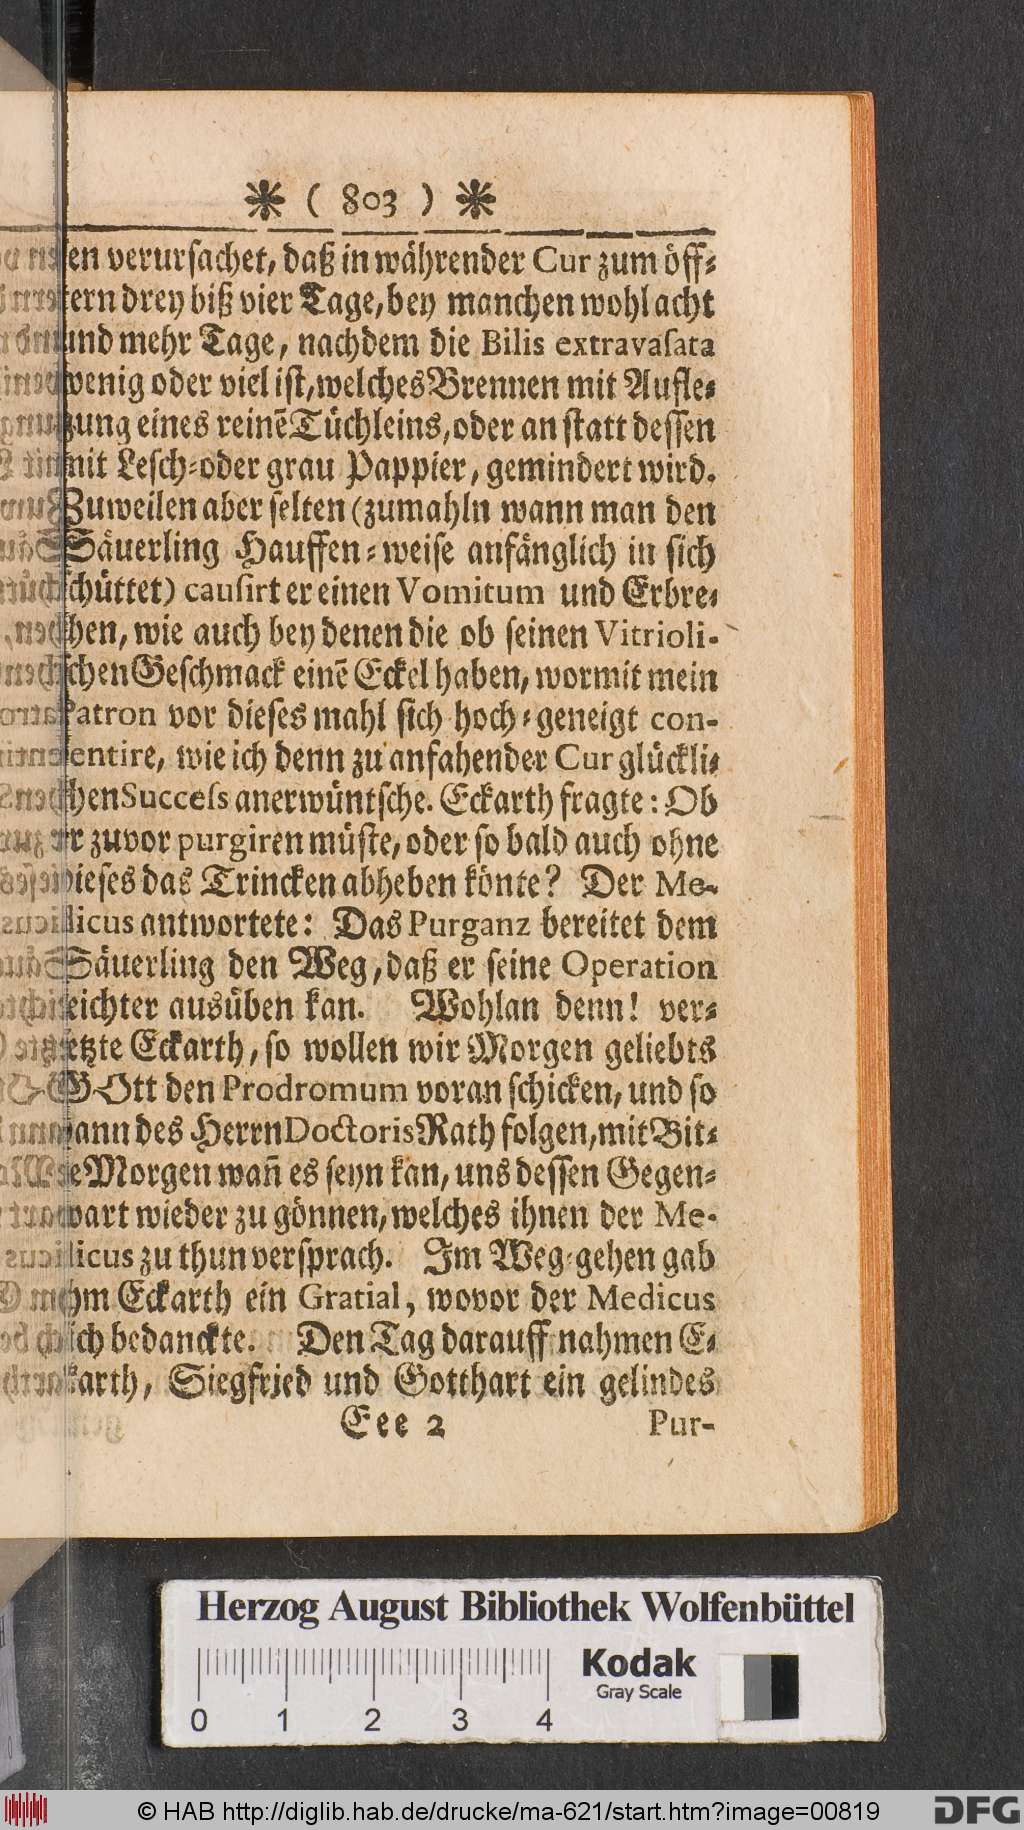 ✱ ( 803 ) ✱
en verursachet, daß in währender Cur zum öff⸗
tern drey biß vier Tage, bey manchen wohl acht
und mehr Tage, nachdem die Bilis extravasata
wenig oder viel ist, welches Brennen mit Aufle⸗
gung eines reinē Tüchleins, oder an statt dessen
mit Lesch⸗oder grau Pappier, gemindert wird.
Zuweilen aber selten (zumahln wann man den
Säuerling Hauffen⸗weise anfänglich in sich
schüttet) causirt er einen Vomitum und Erbre⸗
chen, wie auch bey denen die ob seinen Vitrioli-
schen Geschmack einē Eckel haben, wormit mein
Patron vor dieses mahl sich hoch⸗geneigt con-
tentire, wie ich denn zu anfahender Cur glückli⸗
chen Success anerwüntsche. Eckarth fragte: Ob
er zuvor purgiren müste, oder so bald auch ohne
dieses das Trincken abheben könte? Der Me-
dicus antwortete: Das Purganz bereitet dem
Säuerling den Weg, daß er seine Operation
leichter ausüben kan. Wohlan denn! ver⸗
setzte Eckarth, so wollen wir Morgen geliebts
GOtt den Prodromum voran schicken, und so
dann des Herrn Doctoris Rath folgen, mit Bit⸗
te Morgen wañ es seyn kan, uns dessen Gegen⸗
wart wieder zu gönnen, welches ihnen der Me-
dicus zu thun versprach. Im Weg⸗gehen gab
ihm Eckarth ein Gratial, wovor der Medicus
sich bedanckte. Den Tag darauff nahmen E⸗
ckarth, Siegfried und Gotthart ein gelindes
Eee 2 Pur-
Herzog August Bibliothek Wolfenbüttel
Kodak
Gray Scale
0 1 2 3 4
© HAB http://diglib.hab.de/drucke/ma-621/start.htm?image=00819
DFG